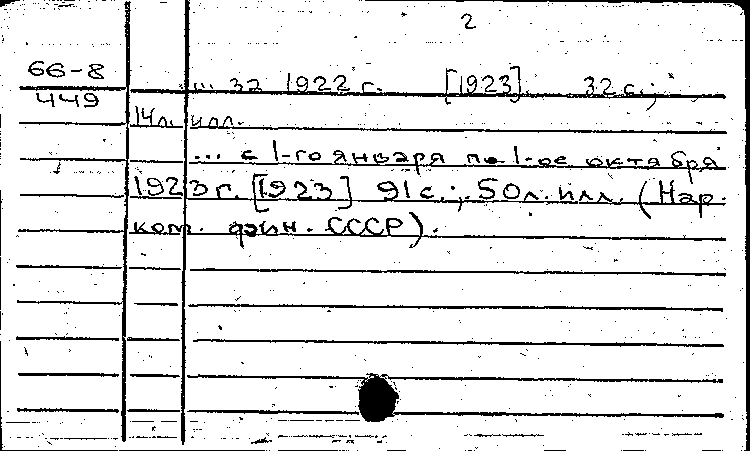 2
66-8
449
... за 1922 г. [1923]. 32 с.;
14 л. илл.
... с 1-го января по 1-ое октября
1923 г. [1923] 91 с.; 50 л. илл. (Нар.
ком. фин. СССР).